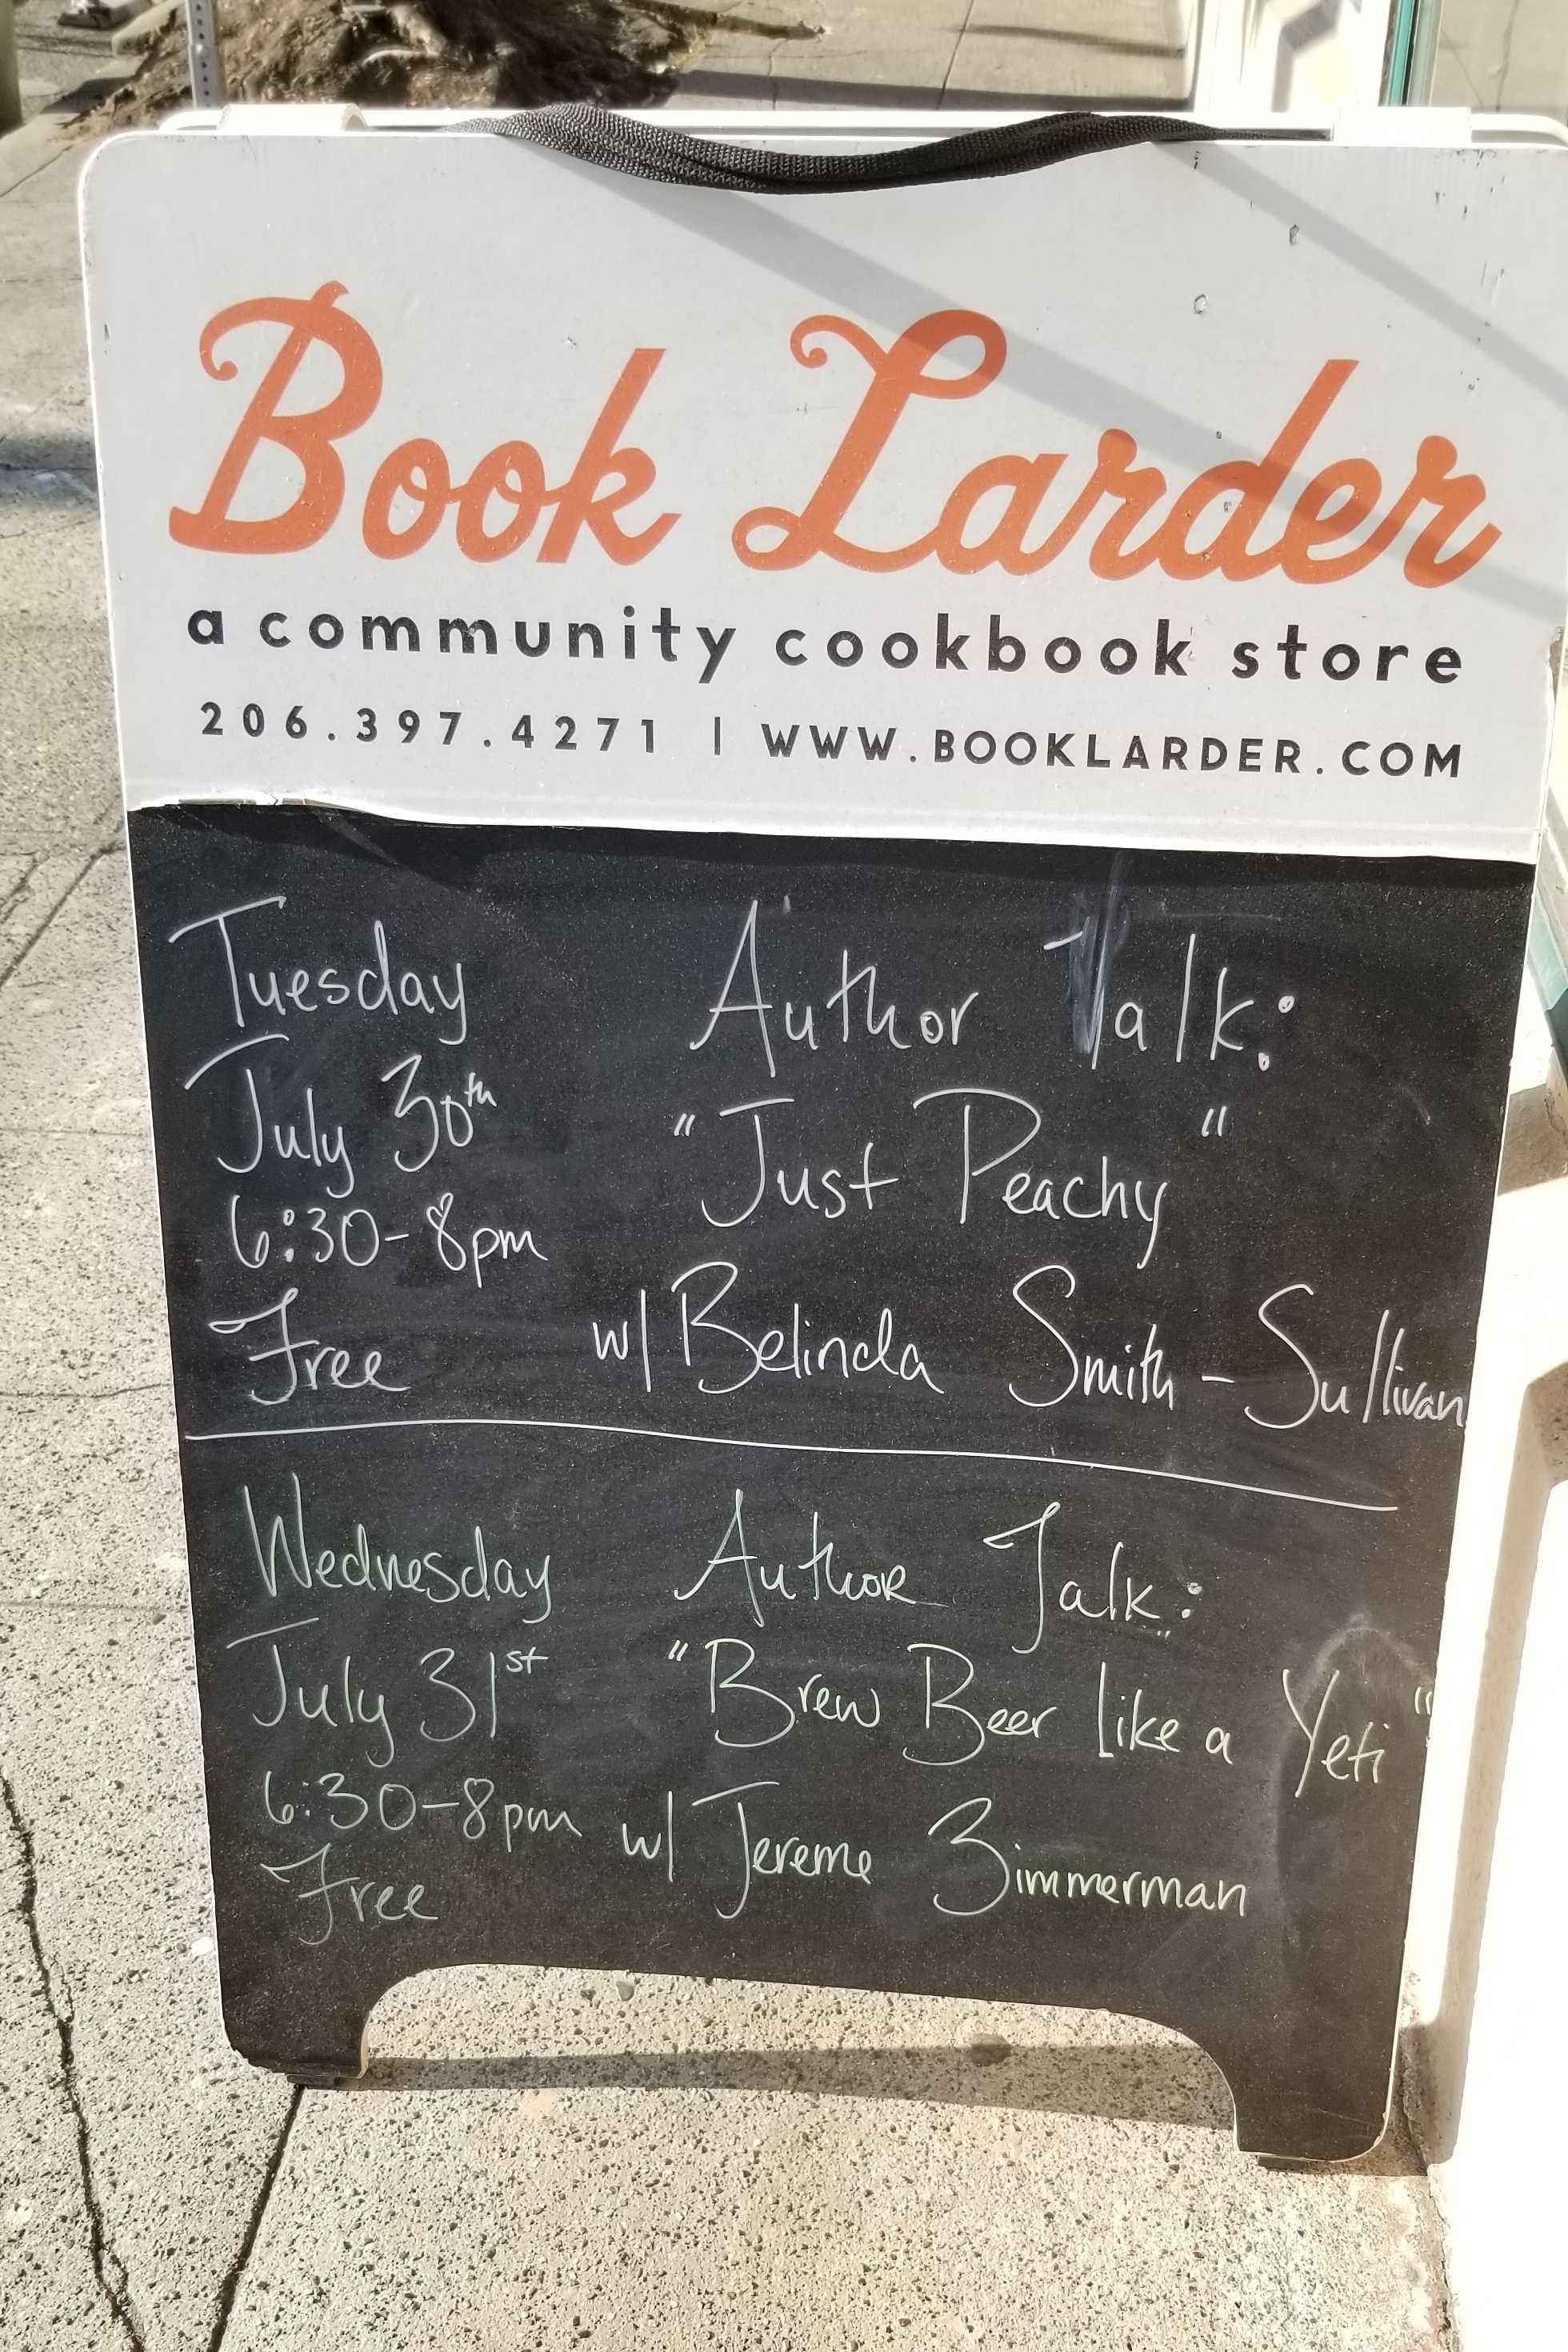 Book Larder
a community cookbook store
206.397.4271 | WWW.BOOKLARDER.COM
Tuesday
July 30th
6:30-8pm
Free
Author Talk:
"Just Peachy"
w/ Belinda Smith-Sullivan
Wednesday
July 31st
6:30-8pm
Free
Author Talk:
"Brew Beer Like a Yeti"
w/ Jereme Zimmerman